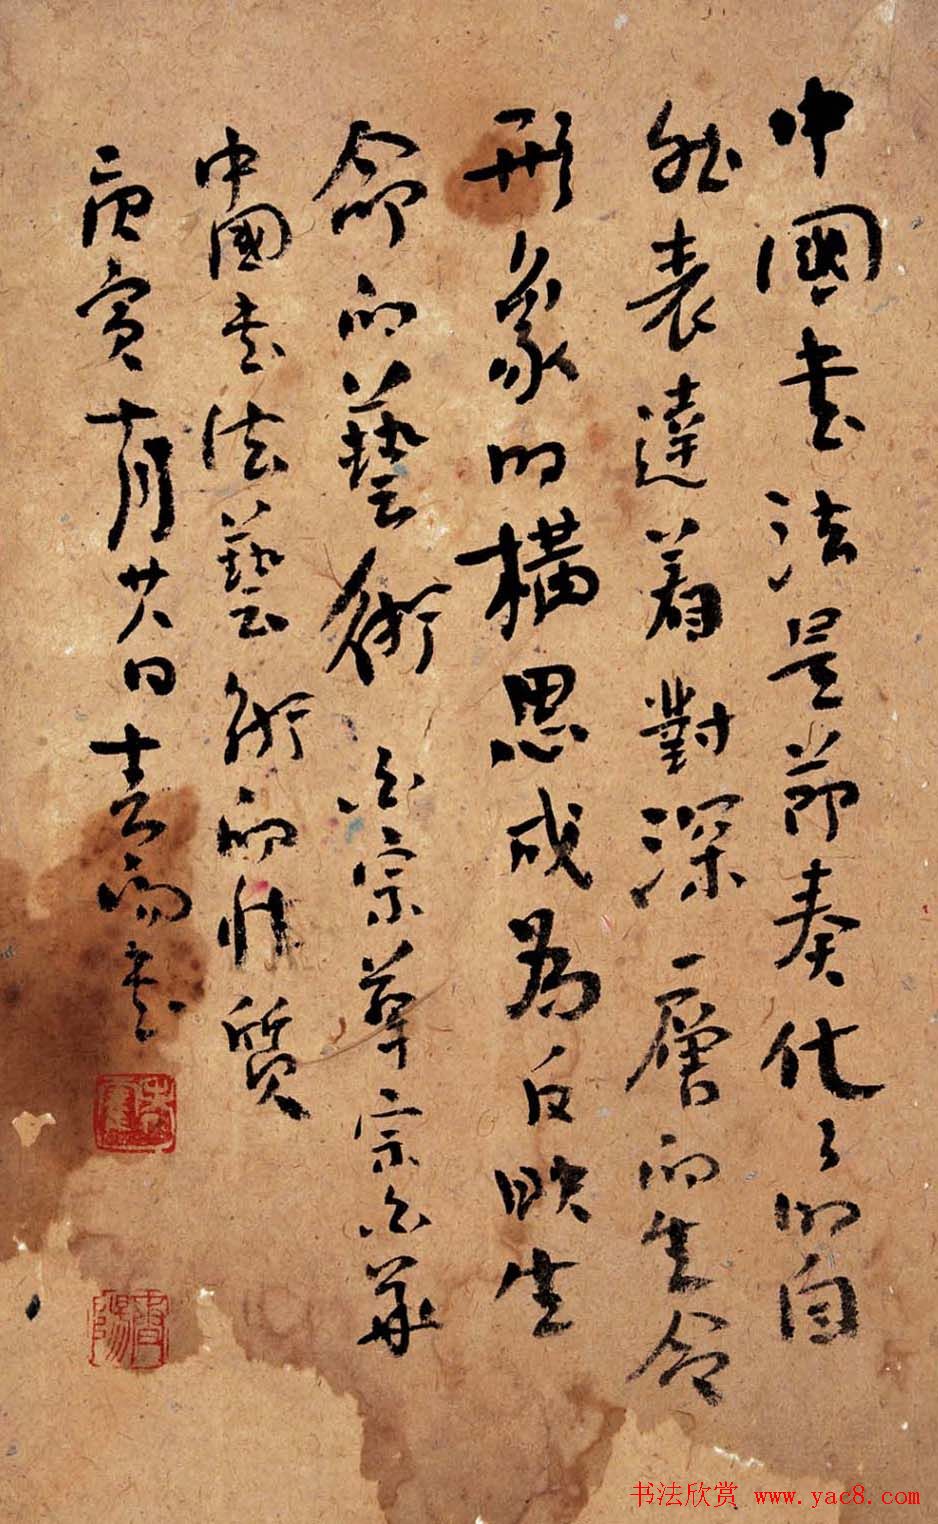 中國書法是節奏化了的自
然表達着對深一層的生命
形象的構思成為反映生
命的藝術 白宗華宗白華
中國書法藝術的性質
庚寅十月廿八日書
书法欣赏 www.yac8.com